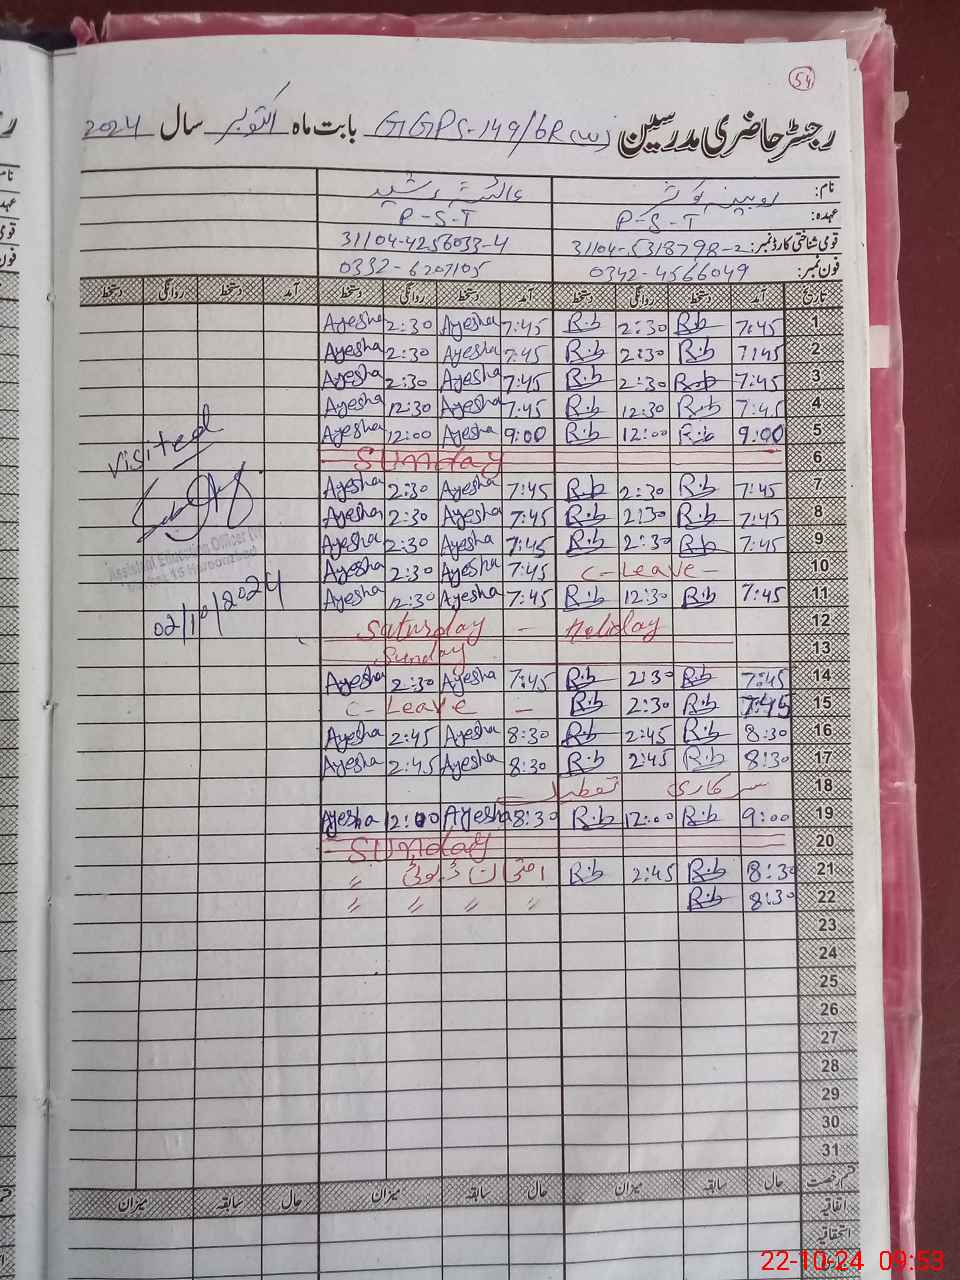 54
رجسٹر حاضری مدرسین GGPS-149/6R(W) بابت ماہ اکتوبر سال 2024
نام: روبینہ کوثر عائشہ رشید
عہدہ: P-S-T P-S-T
قومی شناختی کارڈ نمبر: 31104-5318798-2 31104-4256033-4
فون نمبر: 0342-4566049 0332-6207105
تاریخ آمد دستخط روانگی دستخط آمد دستخط روانگی دستخط آمد دستخط روانگی دستخط
1 7:45 R.b 2:30 R.b 7:45 Ayesha 2:30 Ayesha
2 7:45 R.b 2:30 R.b 7:45 Ayesha 2:30 Ayesha
3 7:45 R.b 2:30 R.b 7:45 Ayesha 2:30 Ayesha
4 7:45 R.b 12:30 R.b 7:45 Ayesha 12:30 Ayesha
5 9:00 R.b 12:00 R.b 9:00 Ayesha 12:00 Ayesha
6 Sunday
7 7:45 R.b 2:30 R.b 7:45 Ayesha 2:30 Ayesha
8 7:45 R.b 2:30 R.b 7:45 Ayesha 2:30 Ayesha
9 7:45 R.b 2:30 R.b 7:45 Ayesha 2:30 Ayesha
10 C-Leave- 7:45 Ayesha 2:30 Ayesha
11 7:45 R.b 12:30 R.b 7:45 Ayesha 12:30 Ayesha
12 Saturday - Holiday
13 Sunday
14 7:45 R.b 2:30 R.b 7:45 Ayesha 2:30 Ayesha
15 7:45 R.b 2:30 R.b C-Leave -
16 8:30 R.b 2:45 R.b 8:30 Ayesha 2:45 Ayesha
17 8:30 R.b 2:45 R.b 8:30 Ayesha 2:45 Ayesha
18 سرکاری تعطیل
19 9:00 R.b 12:00 R.b 8:30 Ayesha 12:00 Ayesha
20 Sunday
21 8:30 R.b 2:45 R.b امتحان ڈیوٹی "
22 8:30 R.b " " " "
23
24
25
26
27
28
29
30
31
visited
Assistant Education Officer (W)
02/10/2024
قسم رخصت حال سابقہ میزان حال سابقہ میزان حال سابقہ میزان
اتفاقیہ
استحقاقیہ
22-10-24 09:53